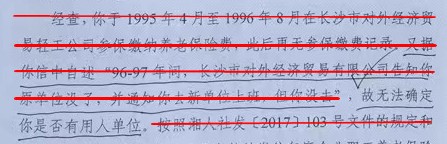 经查，你于1995年4月至1996年8月在长沙市对外经济贸
易轻工公司参保缴纳养老保险费，此后再无参保缴费记录，又据
你信中自述“96-97年间，长沙市对外经济贸易有限公司告知你
原单位没了，并通知你去新单位上班，但你没去”，故无法确定
你是否有用人单位。按照湘人社发〔2017〕103号文件的规定和